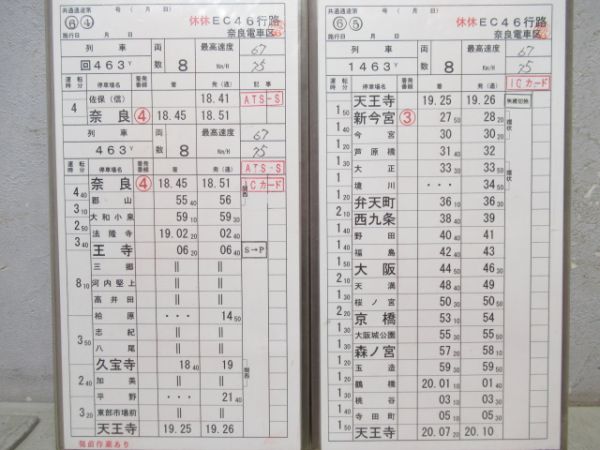 共通通達第 号 ( 月 日)
⑥④
休休EC46行路
施行日 月 日
奈良電車区
列車
回463Y
両数
8
最高速度
Km/H
67
75
運転時分
停車場名
着発番線
着
発(通)
記事
佐保(信) 18.41 ATS-S
4
奈良 ④ 18.45 18.51
列車
463Y
両数
8
最高速度
Km/H
67
75
運転時分
停車場名
着発番線
着
発(通)
ATS-S
奈良 ④ 18.45 18.51 ICカード
4 40
郡山 55 40 56
3 10
大和小泉 59 10 59 30
2 50
法隆寺 19.02 20 02 40
3 40
王寺 06 20 06 40 S→P
三郷 || ||
河内堅上 || ||
8 10
高井田 || ||
柏原 ・・・ 14 50
志紀 || ||
3 50
八尾 || ||
久宝寺 18 40 19
加美 || ||
2 40
平野 ・・・ 21 40
東部市場前 || ||
3 20
天王寺 19.25 19.26
発前作業あり
共通通達第 号 ( 月 日)
⑥⑤
休休EC46行路
施行日 月 日
奈良電車区
列車
1463Y
両数
8
最高速度
Km/H
67
75
運転時分
停車場名
着発番線
着
発(通)
ICカード
天王寺 19.25 19.26
1 50
新今宮 ③ 27 50 28 20
今宮 30 30 20
芦原橋 31 40 32
大正 33 33 50
境川 ・・・ 34 50
弁天町 36 36 30
西九条 38 40 39
野田 40 41
福島 42 40 43
大阪 44 50 46 30
天満 48 49
桜ノ宮 50 50
京橋 53 10 54
大阪城公園 55 55
森ノ宮 57 20 58
玉造 59 59 30
鶴橋 20.01 10 01 40
桃谷 03 03
寺田町 05 05 30
天王寺 20.07 20 20.10